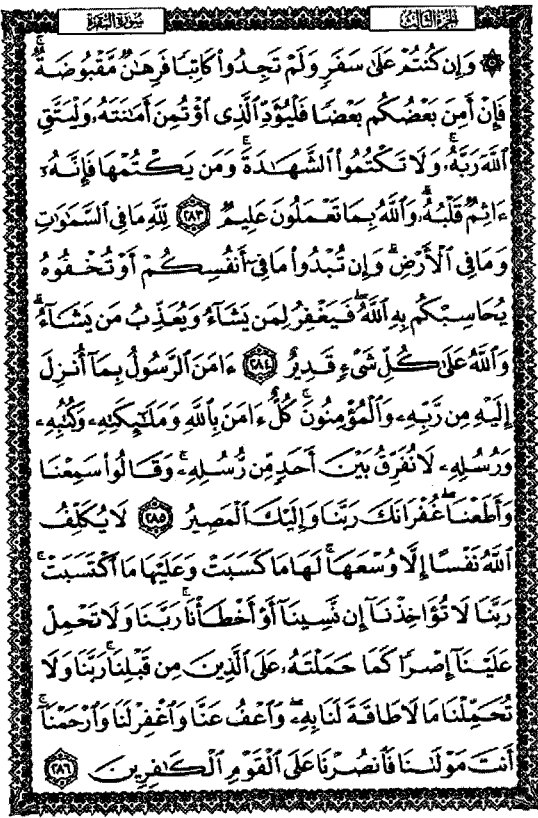 الجزء الثالث
سورة البقرة
۞ وَإِن كُنتُمْ عَلَىٰ سَفَرٍ وَلَمْ تَجِدُوا۟ كَاتِبًا فَرِهَٰنٌ مَّقْبُوضَةٌ ۖ
فَإِنْ أَمِنَ بَعْضُكُم بَعْضًا فَلْيُؤَدِّ ٱلَّذِى ٱؤْتُمِنَ أَمَٰنَتَهُۥ وَلْيَتَّقِ
ٱللَّهَ رَبَّهُۥ ۗ وَلَا تَكْتُمُوا۟ ٱلشَّهَٰدَةَ ۚ وَمَن يَكْتُمْهَا فَإِنَّهُۥٓ
ءَاثِمٌ قَلْبُهُۥ ۗ وَٱللَّهُ بِمَا تَعْمَلُونَ عَلِيمٌ ٢٨٣ لِّلَّهِ مَا فِى ٱلسَّمَٰوَٰتِ
وَمَا فِى ٱلْأَرْضِ ۗ وَإِن تُبْدُوا۟ مَا فِىٓ أَنفُسِكُمْ أَوْ تُخْفُوهُ
يُحَاسِبْكُم بِهِ ٱللَّهُ ۖ فَيَغْفِرُ لِمَن يَشَآءُ وَيُعَذِّبُ مَن يَشَآءُ ۗ
وَٱللَّهُ عَلَىٰ كُلِّ شَىْءٍ قَدِيرٌ ٢٨٤ ءَامَنَ ٱلرَّسُولُ بِمَآ أُنزِلَ
إِلَيْهِ مِن رَّبِّهِۦ وَٱلْمُؤْمِنُونَ ۚ كُلٌّ ءَامَنَ بِٱللَّهِ وَمَلَٰٓئِكَتِهِۦ وَكُتُبِهِۦ
وَرُسُلِهِۦ لَا نُفَرِّقُ بَيْنَ أَحَدٍ مِّن رُّسُلِهِۦ ۚ وَقَالُوا۟ سَمِعْنَا
وَأَطَعْنَا ۖ غُفْرَانَكَ رَبَّنَا وَإِلَيْكَ ٱلْمَصِيرُ ٢٨٥ لَا يُكَلِّفُ
ٱللَّهُ نَفْسًا إِلَّا وُسْعَهَا ۚ لَهَا مَا كَسَبَتْ وَعَلَيْهَا مَا ٱكْتَسَبَتْ ۗ
رَبَّنَا لَا تُؤَاخِذْنَآ إِن نَّسِينَآ أَوْ أَخْطَأْنَا ۚ رَبَّنَا وَلَا تَحْمِلْ
عَلَيْنَآ إِصْرًا كَمَا حَمَلْتَهُۥ عَلَى ٱلَّذِينَ مِن قَبْلِنَا ۚ رَبَّنَا وَلَا
تُحَمِّلْنَا مَا لَا طَاقَةَ لَنَا بِهِۦ ۖ وَٱعْفُ عَنَّا وَٱغْفِرْ لَنَا وَٱرْحَمْنَآ ۚ
أَنتَ مَوْلَىٰنَا فَٱنصُرْنَا عَلَى ٱلْقَوْمِ ٱلْكَٰفِرِينَ ٢٨٦